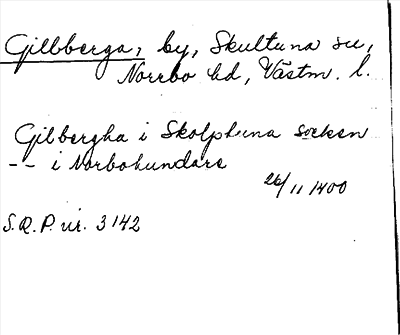 Gillberga, by, Skultuna sn,
Norrbo hd, Västm. l.
Gilbergha i Skolphuna socken
-- i Norbohundare
26/11 1400
S.R.P. nr. 3142